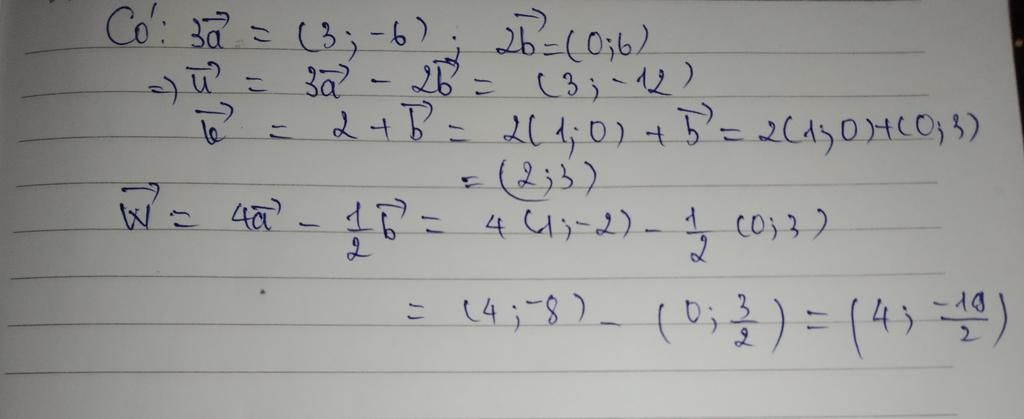 Có: 3a⃗ = (3;-6); 2b⃗ = (0;6)
=> u⃗ = 3a⃗ - 2b⃗ = (3;-12)
= 2 + b⃗ = 2(1;0) + b⃗ = 2(1;0)+(0;3)
= (2;3)
w⃗ = 4a⃗ - 1/2 b⃗ = 4(1;-2) - 1/2 (0;3)
= (4;-8) - (0; 3/2) = (4; /2)